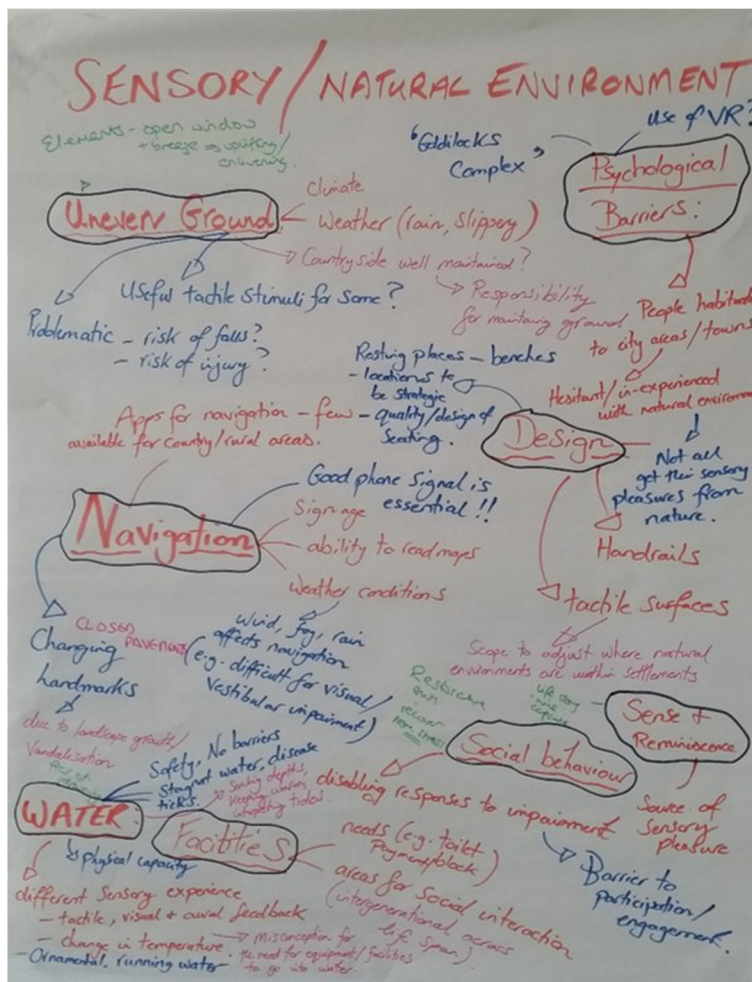 SENSORY/NATURAL ENVIRONMENT
Elements - open window
+ breeze uplifting/
enlivening.
"Goldilocks
Complex"
use of VR?
Psychological
Barriers:
Uneven Ground
Climate
Weather (rain, slippery)
Countryside well maintained?
Responsibility
for maintaing ground
Useful tactile stimuli for some?
Problematic - risk of falls?
- risk of injury?
People habituated
to city areas/towns
Hesitant/in-experienced
with natural environm
Not all
get their sensory
pleasures from
nature.
Resting places - benches
- locations to
be strategic
- quality/design of
seating.
Design
Handrails
tactile surfaces
Scope to adjust where natural
environments are within settlements
Apps for navigation - few
available for country/rural areas.
Navigation
Good phone signal is
essential!!
Signage
ability to read maps
Weather conditions
Wind, fog, rain
affects navigation
(e.g. difficult for visual/
Vestibular impairment)
CLOSED
PAVEMENTS
Changing
landmarks
due to landscape growth/
Vandalisation
Restorative
recover
from stress
Sense &
Reminiscence
Source of
Sensory
pleasure
Social behaviour
disabling responses to impairment
Barrier to
participation/
engagement.
WATER
Safety, No barriers
Stagnant water, disease
ticks.
depths,
keeping warm,
interpreting tides
physical capacity
different sensory experience
- tactile, visual + aural feedback
- change in temperature
- Ornamental, running water
misconception for
need for equipment/facilities
to go into water.
Facilities
needs (e.g. toilet
Payment/block)
areas for social interaction
(intergenerational across
life span)